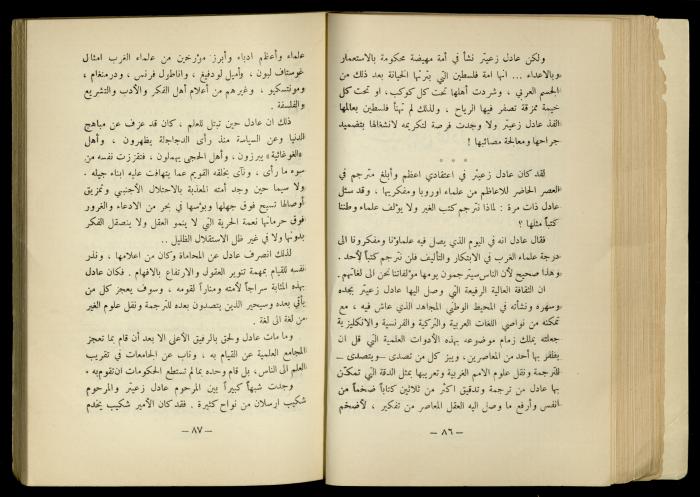 ولكن عادل زعيتر نشأ في أمة مهيضة محكومة بالاستعمار
وبالاعداء ... انها امة فلسطين التي بترتها الخيانة بعد ذلك من
الجسم العربي ، وشردت أهلها تحت كل كوكب، او تحت كل
خيمة ممزقة تصفر فيها الرياح ، ولذلك لم تهنأ فلسطين بعالمها
الفذ عادل زعيتر ولا وجدت فرصة لتكريمه لانشغالها بتضميد
جراحها ومعالجة مصائبها !
* * *
لقد كان عادل زعيتر في اعتقادي اعظم وأبلغ مترجم في
العصر الحاضر للأعاظم من علماء اوروبا ومفكريها ، وقد سئل
عادل ذات مرة : لماذا تترجم كتب الغير ولا يؤلف علماء وطننا
كتباً مثلها ؟
فقال عادل انه في اليوم الذي يصل فيه علماؤنا ومفكرونا الى
درجة علماء الغرب في الابتكار والتأليف فلن نترجم كتباً لأحد .
وهذا صحيح لأن الناس سيترجمون يومها مؤلفاتنا نحن الى لغاتهم .
ان الثقافة العالية الرفيعة التي وصل اليها عادل زعيتر بجده
وسهره ونشأته في المحيط الوطني المجاهد الذي عاش فيه ، مع
تمكنه من نواصي اللغات العربية والتركية والفرنسية والانكليزية
جعلته يملك زمام موضوعه بهذه الأدوات العلمية التي قل ان
يظفر بها أحد من المعاصرين ، ويبز كل من تصدى – ويتصدى –
للترجمة ونقل علوم الامم الغربية وتعريبها بمثل الدقة التي تمكن
بها عادل من ترجمة وتدقيق اكثر من ثلاثين كتاباً ضخماً من
انفس وأرفع ما وصل اليه العقل المعاصر من تفكير ، لأضخم
— ٨٦ —
علماء وأعظم ادباء وأبرز مؤرخين من علماء الغرب امثال
غوستاف لبون ، وأميل لودفيغ ، واناطول فرنس ، ودرمنغام ،
ومونتسكيو ، وغيرهم من أعلام أهل الفكر والأدب والتشريع
والفلسفة .
ذلك ان عادل حين تبتل للعلم ، كان قد عزف عن مباهج
الدنيا وعن السياسة منذ رأى الدجاجلة يظهرون ، وأهل
«الغوغائية» يبرزون ، وأهل الحجى يهملون ، فتقززت نفسه من
سوء ما رأى ، ونآى بخلقه القويم عما يتهافت عليه ابناء جيله .
ولا سيما حين وجد أمته المعذبة بالاحتلال الأجنبي وتمزيق
أوصالها تسيح فوق جهلها وبؤسها في بحر من الادعاء والغرور
فوق حرمانها نعمة الحرية التي لا ينمو العقل ولا ينصقل الفكر
بدونها ولا في غير ظل الاستقلال الظليل ..
لذلك انصرف عادل عن المحاماة وكان من اعلامها ، ونذر
نفسه للقيام بمهمة تنوير العقول والارتفاع بالافهام . فكان عادل
بهذه المثابة سراجاً لأمته ومناراً لقومه ، وسوف يعجز كل من
يأتي بعده وسيحير الذين يتصدون بعده للترجمة ونقل علوم الغير
من لغة الى لغة .
وما مات عادل ولحق بالرفيق الأعلى الا بعد أن قام بما تعجز
المجامع العلمية عن القيام به ، وناب عن الجامعات في تقريب
العلم الى الناس، بل قام وحده بما لم تستطع الحكومات ان تقوم به .
وجدت شبهاً كبيراً بين المرحوم عادل زعيتر والمرحوم
شكيب ارسلان من نواح كثيرة . فقد كان الأمير شكيب يخدم
— ٨٧ —